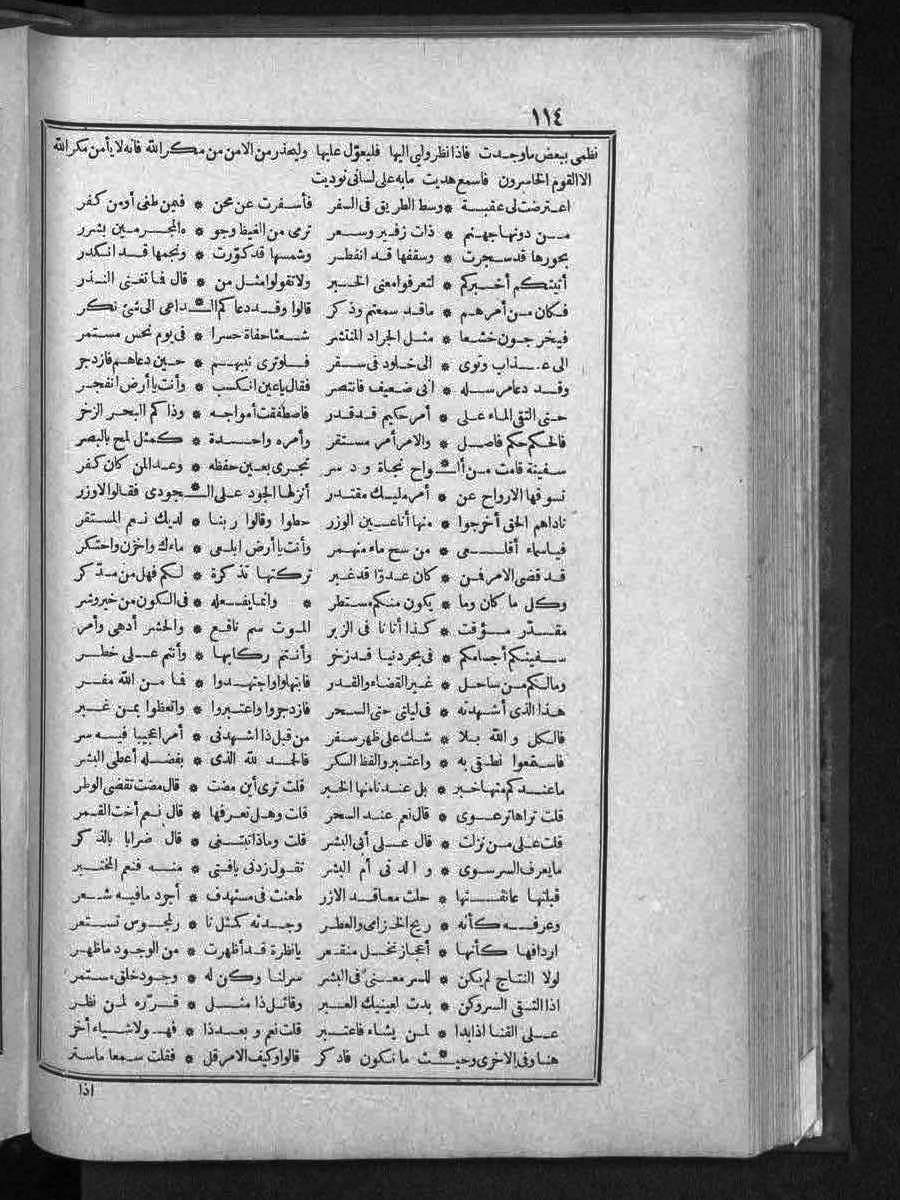 ١١٤
نظمى ببعض ما وجدت فاذا نظر ولى اليها فليعوّل عليها وليحذر من الامن من مكر الله فانه لا يأمن مكر الله
الا القوم الخاسرون فاسمع هديت ما به على لسانى نوديت
اعترضت لى عقبة * وسط الطريق فى السفر فأسفرت عن محن * فمن طغى أو من كفر
من دونها جهنم * ذات زفير وسعر ترمى من الغيظ وجو * ه المجرمين بشرر
بحورها قد سجرت * وسقفها قد انفطر وشمسها قد كوّرت * ونجمها قد انكدر
أنبئكم أخبركم * لتعرفوا معنى الخبر ولا تقولوا مثل من * قال فما تغنى النذر
فكان من أمرهم * ما قد سمعتم وذكر قالوا وقد دعاكم الـ * ـداعى الى شئ نكر
فيخرجون خشعا * مثل الجراد المنتشر شعثا حفاة حسرا * فى يوم نحس مستمر
الى عذاب وتوى * الى خلود فى سقر فلو ترى نبيهم * حين دعاهم فازدجر
وقد دعا مرسله * انى ضعيف فانتصر فقال يا عين انسكب * وأنت يا أرض انفجر
حتى التقى الماء على * أمر حكيم قد قدر فاصطفقت أمواجه * وذاكم البحر الزخر
فالحكم حكم فاصل * والامر أمر مستقر وأمره واحدة * كمثل لمح بالبصر
سفينة قامت من الـ * ـواح نجاة ودسر تجرى بعين حفظه * وعد المن كان كفر
تسوقها الارواح عن * أمر مليك مقتدر أنزلها الجود على الـ * ـجودى فقالوا لا وزر
ناداهم الحق أخرجوا * منها أنا عين الوزر حطوا وقالوا ربنا * لديك نعم المستقر
فيا سماء أقلعى * من سح ماء منهمر وأنت يا أرض ابلعى * ماءك واخزن واحتكر
قد قضى الامر فمن * كان عدوّا قد غبر تركتها تذكرة * لكم فهل من مدّكر
وكل ما كان وما * يكون منكم مستطر * وانما يفعله * فى الكون من خير وشر
مقدّر مؤقت * كذا أتانا فى الزبر الموت سم ناقع * والحشر أدهى وأمر
سفينكم أجسامكم * فى بحر دنيا قد زخر وأنتم ركابها * وأنتم على خطر
وما لكم من ساحل * غير القضاء والقدر فابتهلوا واجتهدوا * فما من الله مفر
هذا الذى أشهدته * فى ليلتى حتى السحر فازدجروا واعتبروا * واتعظوا بمن غبر
فالكل والله بلا * شك على ظهر سفر من قبل ذا اشهدنى * أمرا عجيبا فيه سر
فاسمعوا نطقى به * واعتبروا لفظ السكر فالحمد لله الذى * بفضله أعطى البشر
ما عندكم منها خبر * بل عندنا منها الخبر قلت ترى أين مضت * قال مضت تقضى الوطر
قلت تراها ترعوى * قال نعم عند السحر قلت وهل تعرفها * قال نعم أخت القمر
قلت على من نزلت * قال على أبى البشر قلت وماذا تبتغى * قال ضرابا بالذكر
ما يعرف السر سوى * والدتى أم البشر تقول زدنى يا فتى * منه فنعم المختبر
قبلتها عانقتها * حلت معاقد الازر طعنت فى مستهدف * أجرد ما فيه شعر
وعرفه كأنه * ريح الخزامى والعطر وجدته كمثل نا * ر لمجوس تستعر
اردافها كأنها * أعجاز نخل منقعر يا نظرة قد أظهرت * من الوجود ما ظهر
لولا النتاج لم يكن * للسر معنى فى البشر سرلنا وكن له * وجود خلق مستمر
اذا التقى السر وكن * بدت لعينيك العبر وقائل ذا مثل * قرّره لمن نظر
على الفنا اذا بدا * لمن يشاء فاعتبر قلت نعم وبعد ذا * فهو لاشياء أخر
هنا وفى الاخرى وحيـ * ـث ما تكون فادكر قالوا وكيف الامر قل * فقلت سمعا ما ستر
اذا